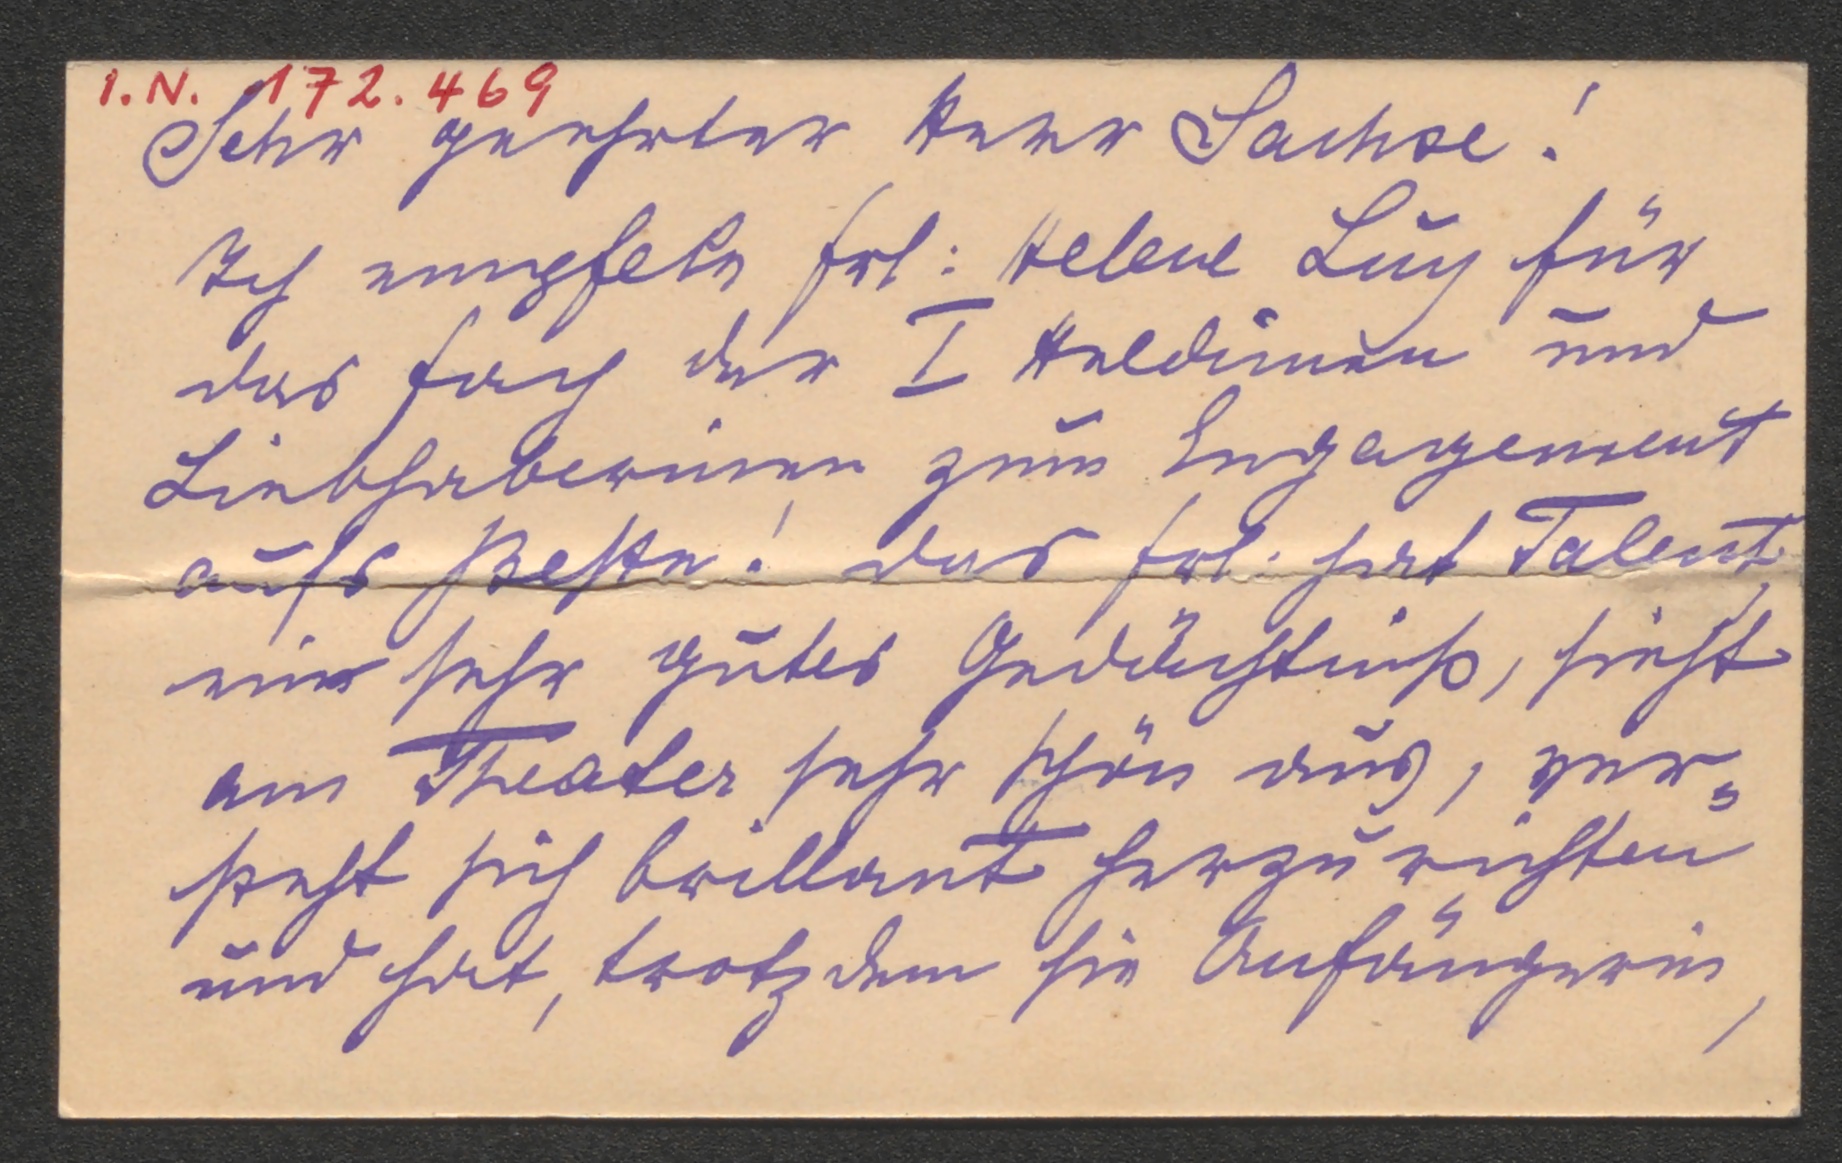 I.N. 172.469
Sehr geehrter Herr Sachse!
Ich empfele Frl: Helene Luy für
das Fach der I Heldinen und
Liebhaberinen zum Engagement
aufs Beste! Das Frl: hat Talent,
ein sehr gutes Gedächtniß, sieht
am Theater sehr schön aus, ver=
steht sich brillant herzurichten
und hat, trotzdem sie Anfängerin,